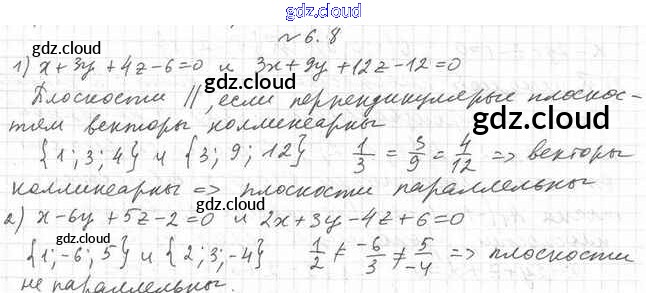 gdz.cloud
№ 6.8
gdz.cloud gdz.cloud
1) x+3y+4z-6=0 и 3x+9y+12z-12=0
gdz.cloud
Плоскости ||, если перпендикулярные плоскос-
тям векторы коллинеарны
gdz.cloud
{1; 3; 4} и {3; 9; 12} 1/3 = 3/9 = 4/12 => векторы
коллинеарны => плоскости параллельны
gdz.cloud
2) x-6y+5z-2=0 и 2x+3y-4z+6=0
gdz.cloud
{1; -6; 5} и {2; 3; -4} 1/2 ≠ -6/3 ≠ 5/-4 => плоскости
не параллельны.